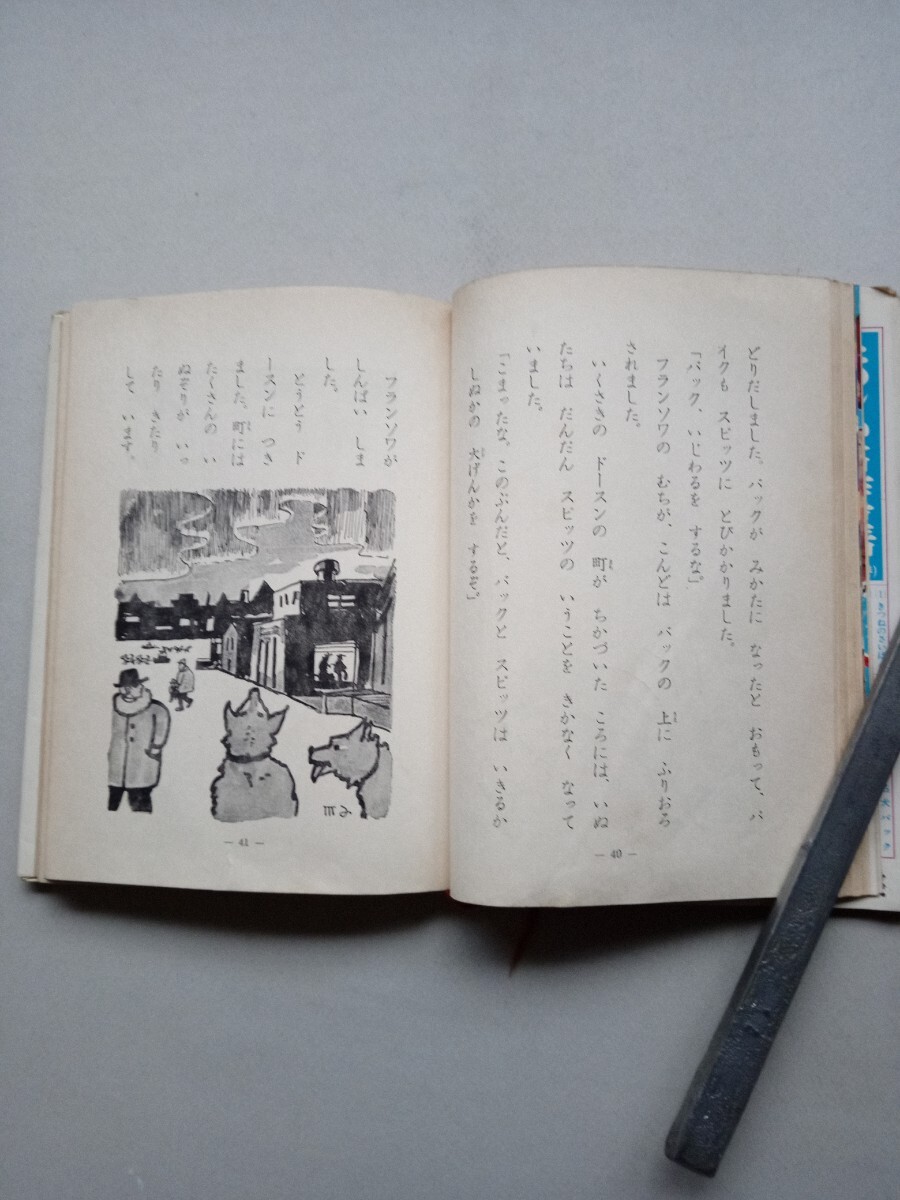 どりだしました。バックが みかたに なったと おもって、パ
イクも スピッツに とびかかりました。
「バック、いじわるを するな」
フランソワの むちが、こんどは バックの 上に ふりおろ
されました。
いくさきの ドースンの 町が ちかづいた ころには、いぬ
たちは だんだん スピッツの いうことを きかなく なって
いました。
「こまったな。このぶんだと、バックと スピッツは いきるか
しぬかの 大げんかを するぞ」
— 40 —
フランソワが
しんぱい しま
した。
とうとう ド
ースンに つき
ました。町には
たくさんの い
ぬぞりが いっ
たり きたり
して います。
— 41 —